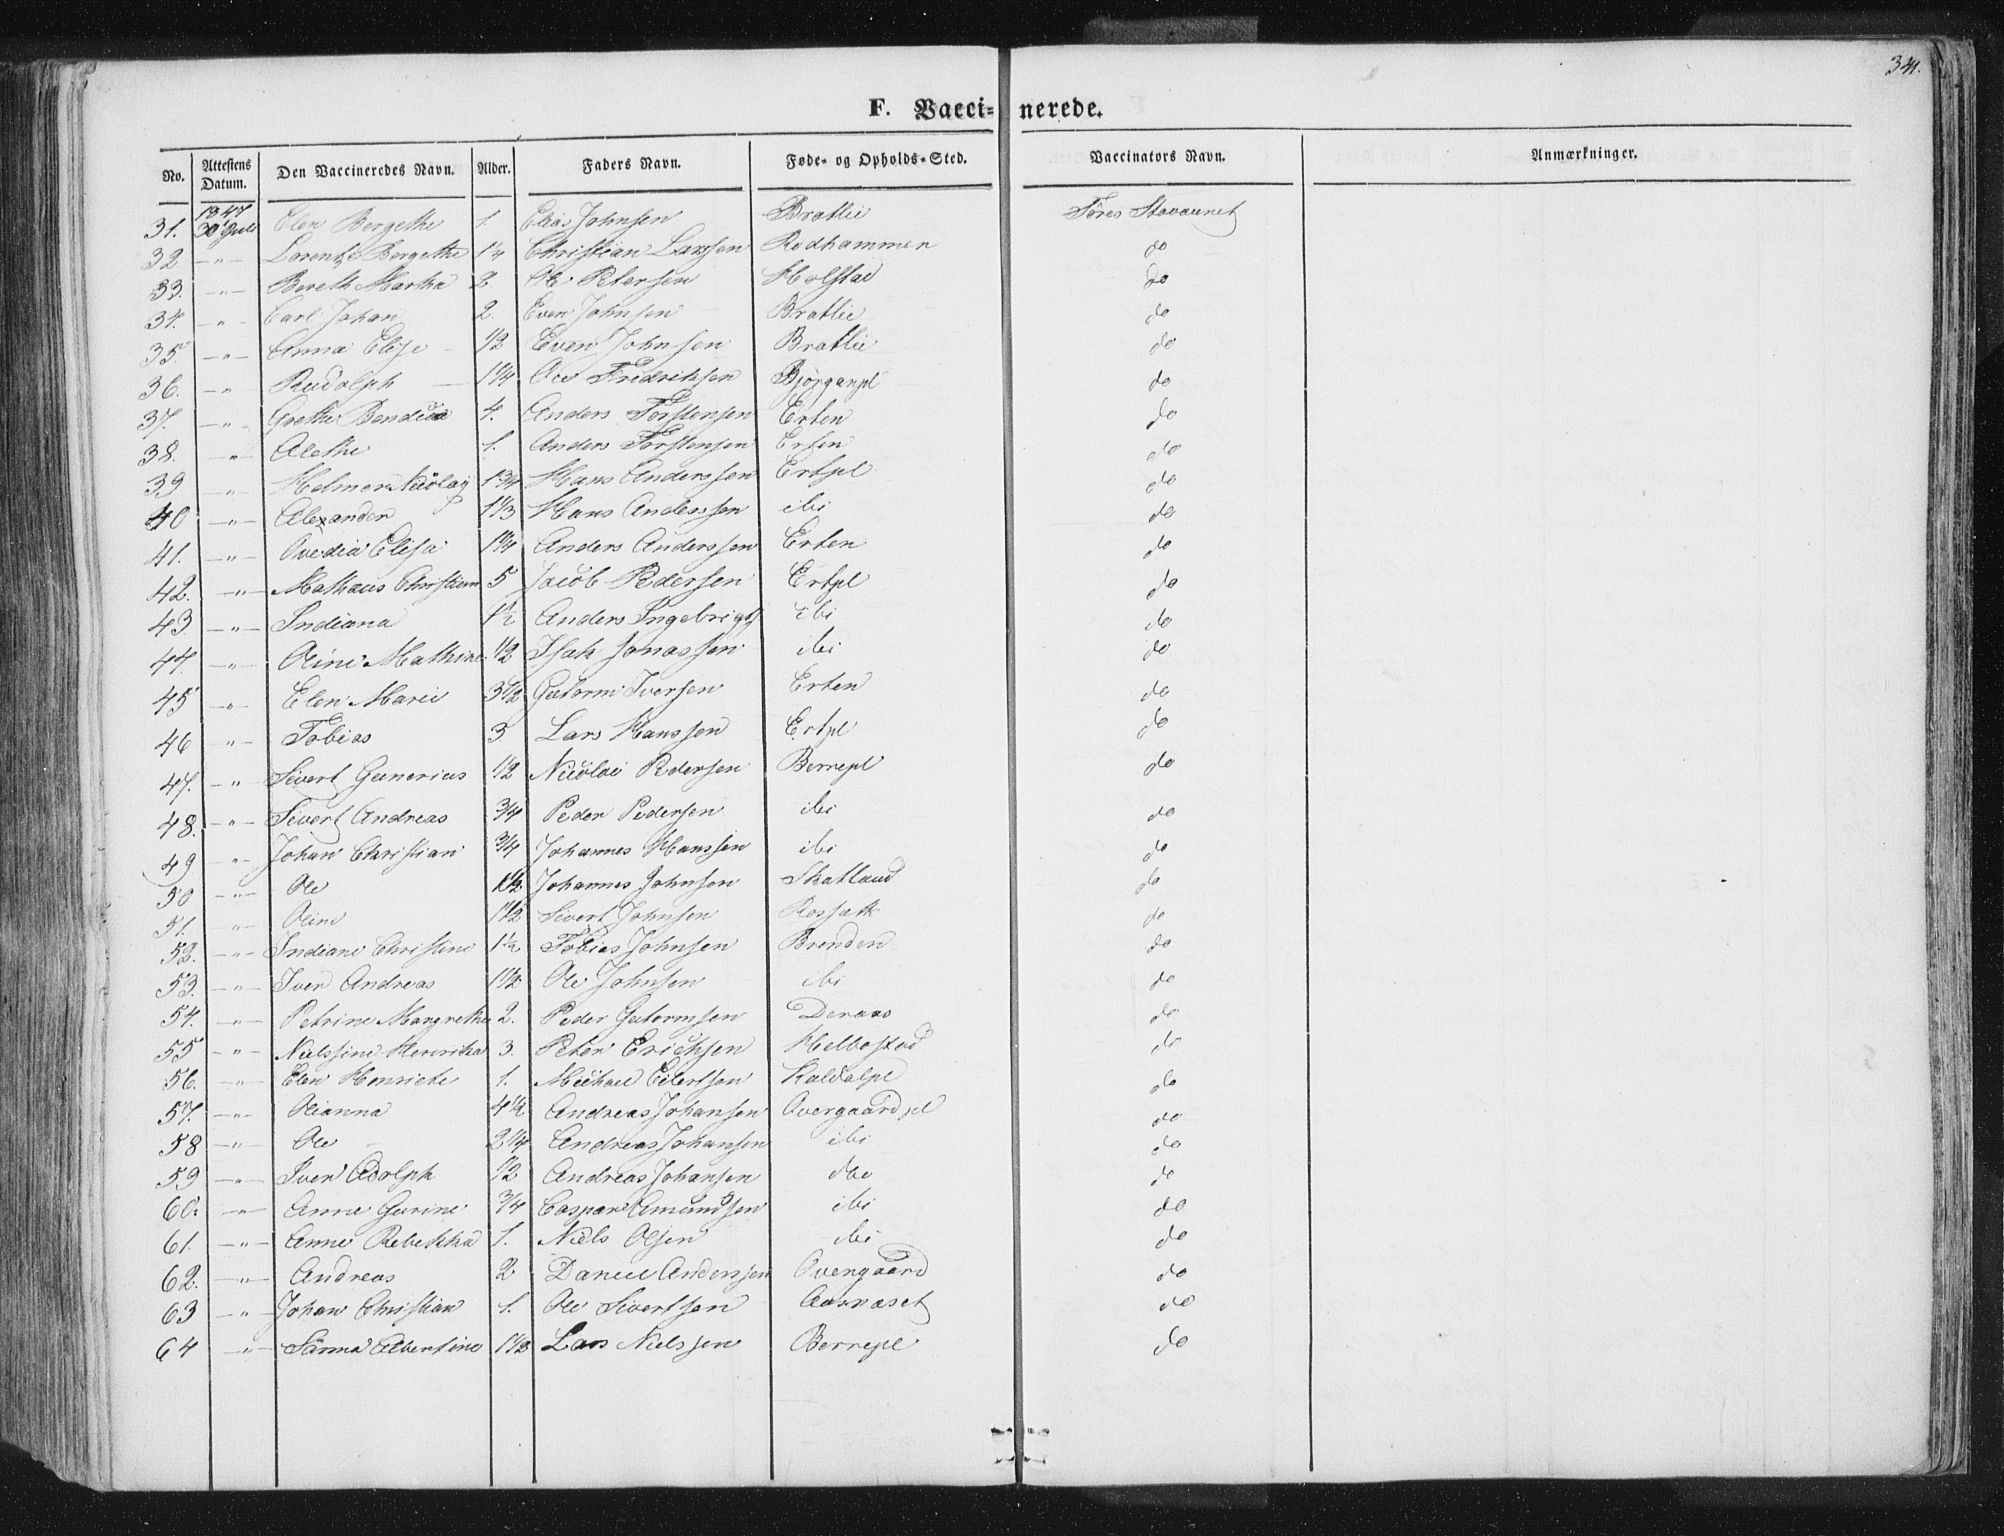 341.
F. Vaccinerede.
No. Attestens Datum. Den Vaccineredes Navn. Alder. Faders Navn. Føde- og Opholds-Sted. Vaccinators Navn. Anmærkninger.
1847
31. 30 Juli Elen Bergethe 1. Elias Johnsen Bratlie Töres Stavaunet
32 -"- Lorentze Bergethe 1¼ Christian Larssen Rodhammen do
33. -"- Bereth Martha 2 Ole Petersen Holstad do
34. -"- Carl Johan 2. Even Johnsen Bratlie do
35 -"- Anna Elise ½ Even Johnsen Bratlie do
36. -"- Rudolph 1¼ Ole Fredriksen Bjørganpl do
37. -"- Grethe Bendicte 4. Anders Torstensen Erten do
38. " Alethe 1. Anders Torstensen Erten do
39 " Helmer Nicolay 1¾ Hans Anderssen Ertpl do
40 -"- Alexander 1⅓ Hans Anderssen ibi do
41. -"- Ovedia Elisa 1¾ Anders Anderssen Erten do
42. -"- Mathæus Christian 5 Jacob Pedersen Ertpl do
43 -"- Indiana 1½ Anders Ingebrigts ibi do
44. -"- Oline Mathine ½ Isak Jonassen ibi do
45 -"- Elen Marie 3½ Gutorm Iversen Erten do
46 -"- Tobias 3 Lars Hanssen Ertpl do
47. -"- Sivert Gunerius ½ Nicolai Pedersen Berrepl do
48. -"- Sivert Andreas ¾ Peder Pedersen ibi do
49 -"- Johan Christian ¾ Johannes Hanssen ibi do
50 -"- Ole 1½ Johannes Johnsen Skatland do
51. " Oline 1½ Sivert Johnsen Rossæth do
52. -"- Indiane Christine 1½ Tobias Johnsen Brenden do
53. -"- Iver Andreas 1½ Ole Johnsen ibi do
54. -"- Petrine Margrethe 2. Peder Gutormsen Deraas do
55 -"- Nielssine Henrika 3. Peter Erichsen Helbostad do
56. -"- Elen Henricke 1. Michael Eilertsen Kaldalpl do
57. -"- Olianna 4½ Andreas Johansen Overgaard pl do
58 -"- Ole 2¼ Andreas Johansen ibi do
59 -"- Iver Adolph ½ Andreas Johansen do
60. -"- Anne Gurine ¾ Caspar Amundsen ibi do
61. -"- Anne Rebekka 1. Niels Olsen ibi do
62. -"- Andreas 2 Daniel Anderssen Overgaard do
63 -"- Johan Christian 1. Ole Sivertsen Aarnæset do
64 -"- Sanna Albertine 1½ Lars Nielssen Berrepl do